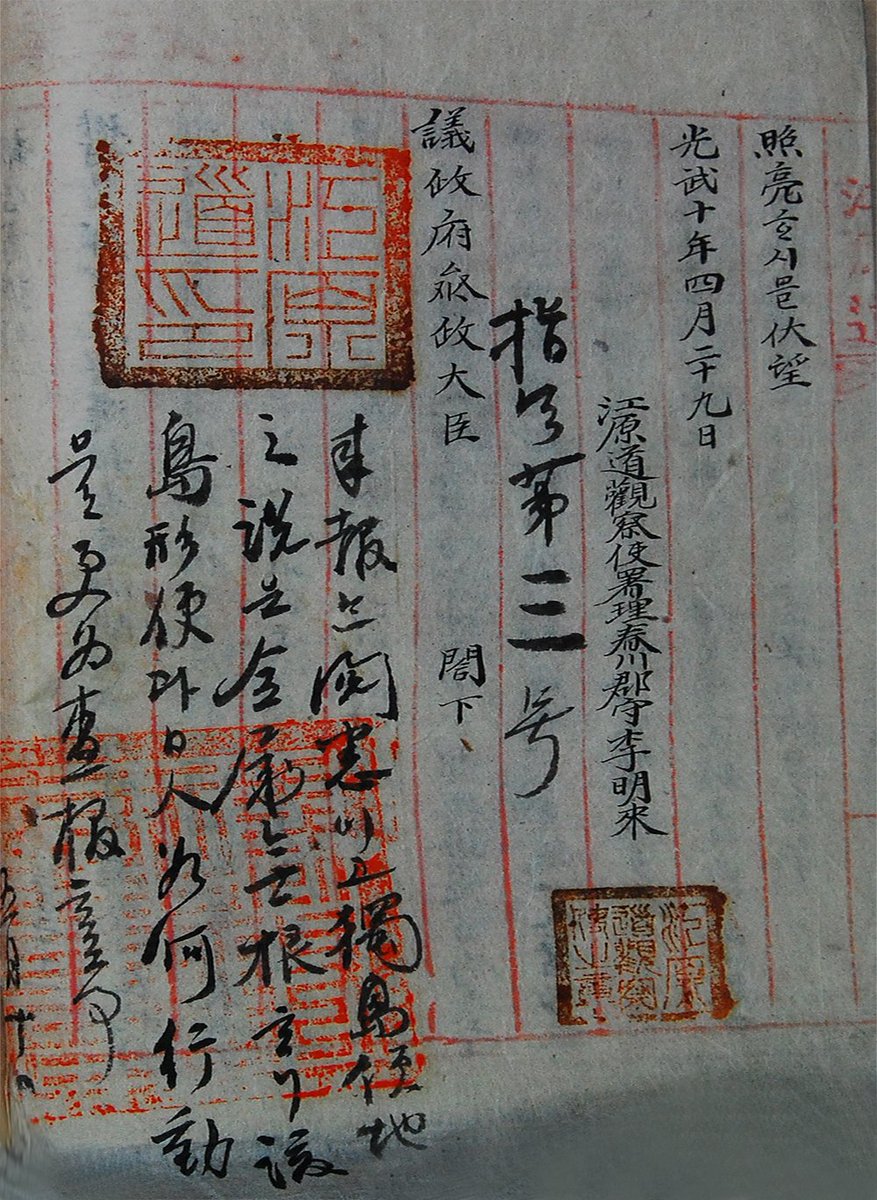 照亮ᄒᆞ시믈伏望
光武十年四月二十九日
江原道觀察使署理春川郡守李明來
江原道觀察使之章
指令第三号
議政府參政大臣 閤下
江原道印
來報ᄂᆞᆫ閱悉이고獨島領地
之說은全屬無根ᄒᆞ나該
島形便과日人如何行動
을更爲査報ᄒᆞᆯ事